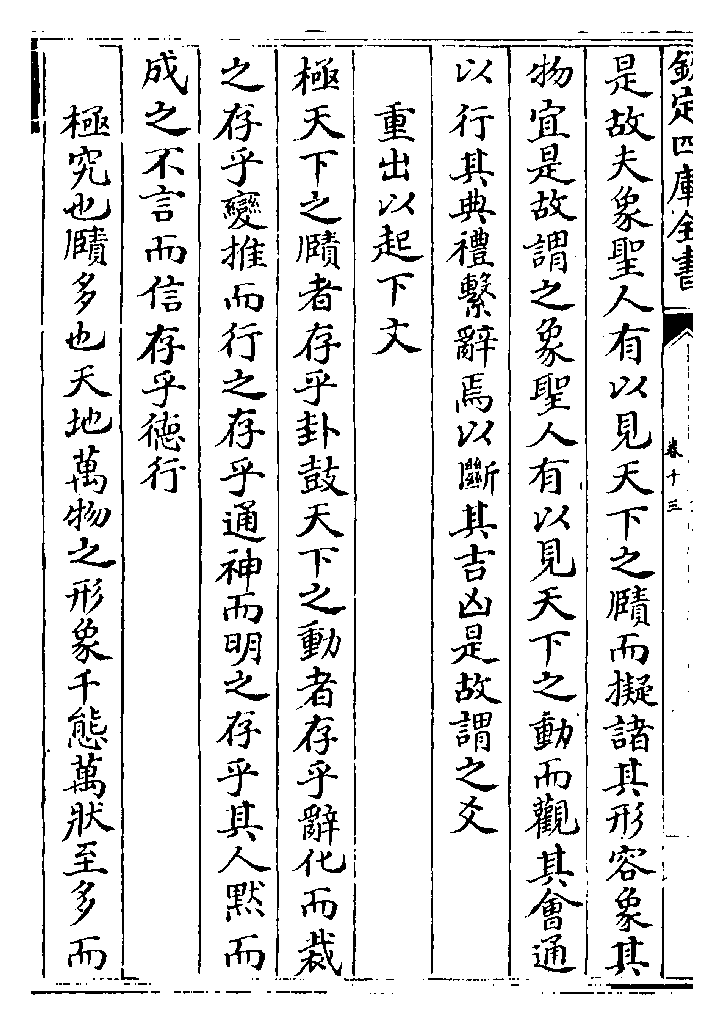 欽定四庫全書
卷十三
是故夫象聖人有以見天下之賾而擬諸其形容象其
物宜是故謂之象聖人有以見天下之動而觀其會通
以行其典禮繫辭焉以斷其吉凶是故謂之爻
重出以起下文
極天下之賾者存乎卦鼓天下之動者存乎辭化而裁
之存乎變推而行之存乎通神而明之存乎其人黙而
成之不言而信存乎徳行
極究也賾多也天地萬物之形象千態萬狀至多而